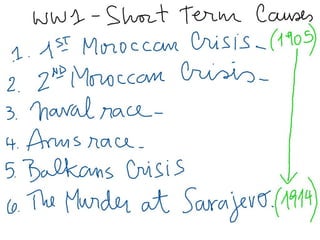 WW1 - Short Term Causes
1. 1ST Moroccan Crisis - (1905)
2. 2ND Moroccan Crisis -
3. Naval race -
4. Arms race -
5. Balkans Crisis
6. The Murder at Sarajevo. (1914)